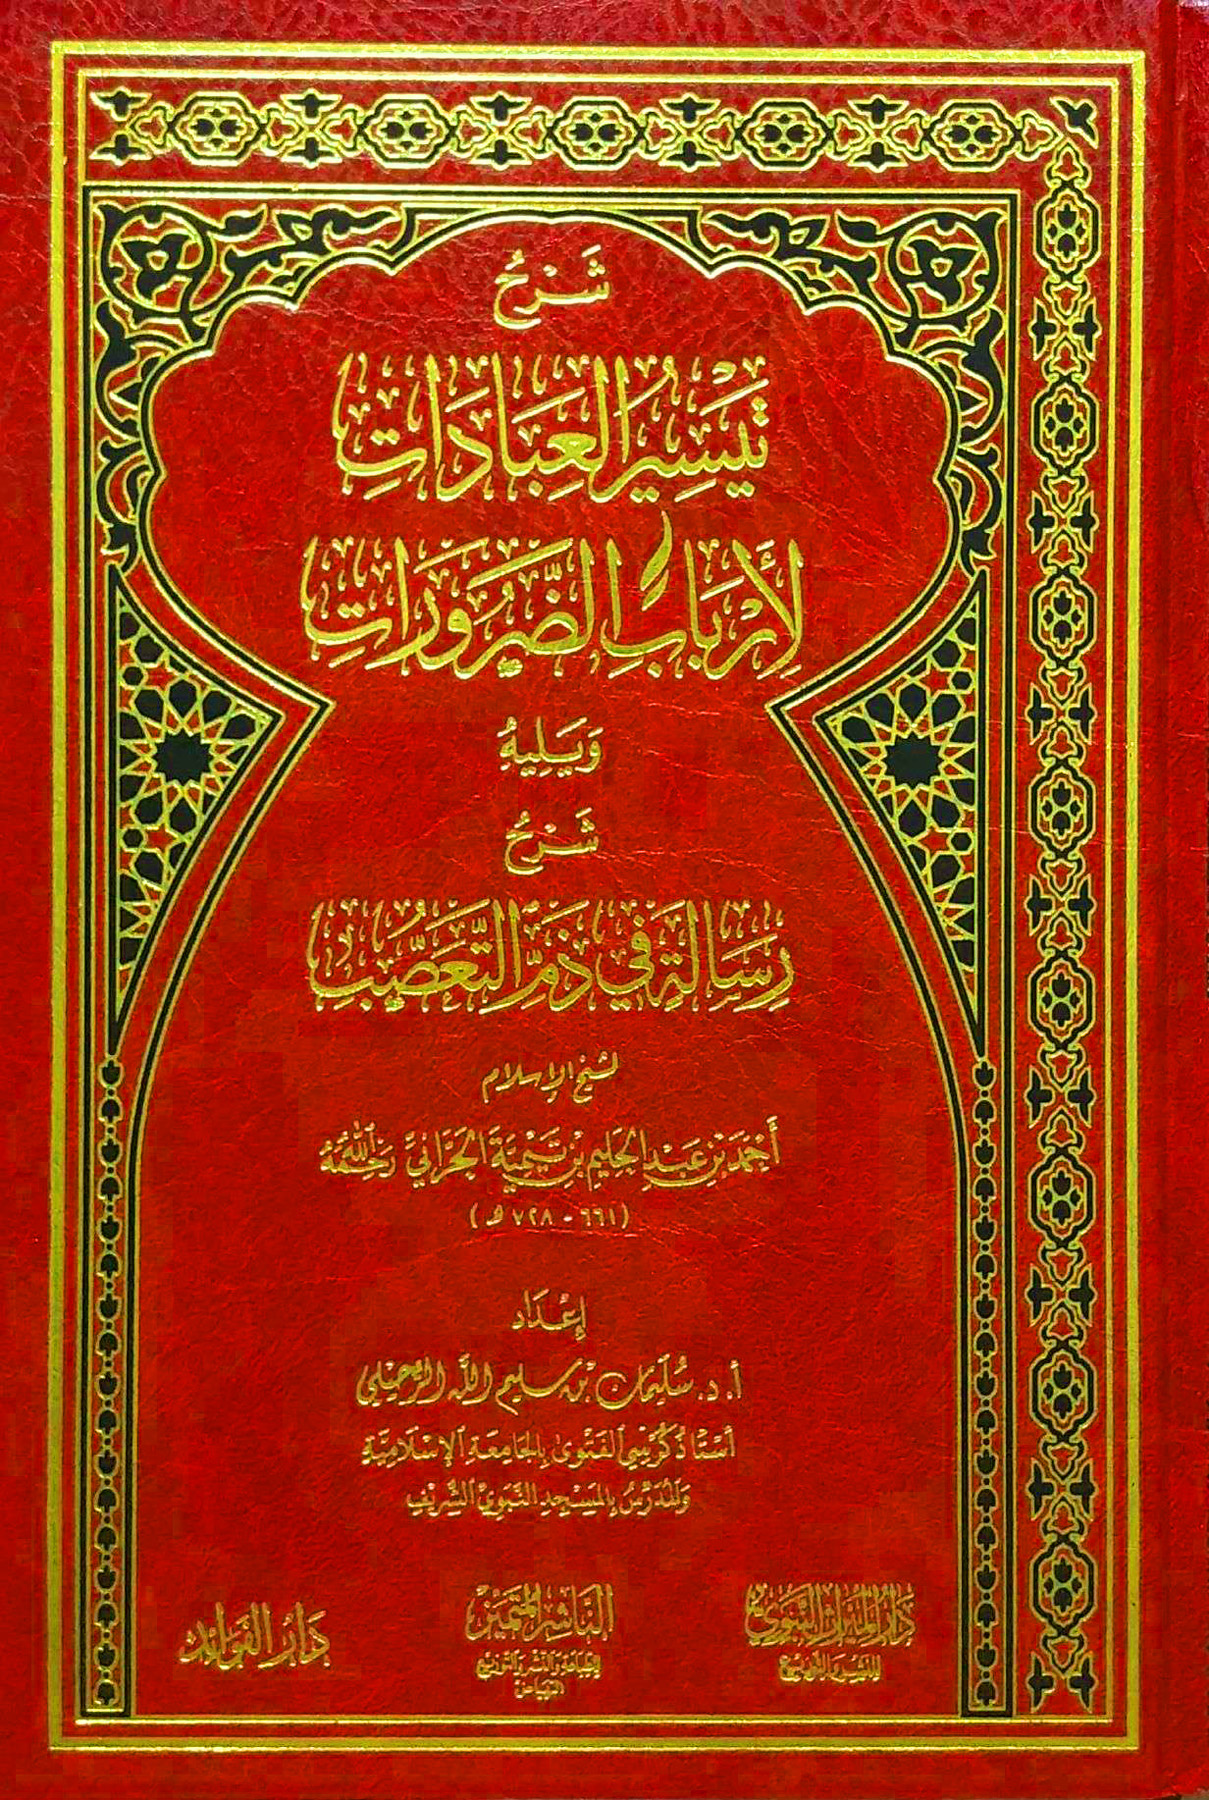 شَرْحُ
تَيْسِيْرِ العِبَادَاتِ
لِأَرْبَابِ الضَّرُورَاتِ
وَيَلِيهِ
شَرْحُ
رِسَالَةٍ فِي ذَمِّ التَّعَصُّبِ
لشيخ الإسلام
أَحْمَد بْنِ عَبْدِ الحَلِيمِ بْنِ تَيْمِيَّةَ الحَرَّانِيِّ رَحِمَهُ اللَّهُ
(٦٦١ - ٧٢٨ هـ)
إِعْدَاد
أ. د. سُلَيْمَان بْن سليم اللّه الرحيلي
أسْتَاذ كُرْسِي الفَتْوى بِالجَامِعَةِ الإِسْلَامِيَّةِ
وَالمُدَرِّسُ بِالمَسْجِدِ النَّبَوِيِّ الشَّرِيْفِ
دَارُ المِيْرَاثِ النَّبَوِيِّ
للنشر والتوزيع
النَّاشِر المُتَمَيِّز
للطباعة والنشر والتوزيع
الرياض
دَارُ الفَوَائِد